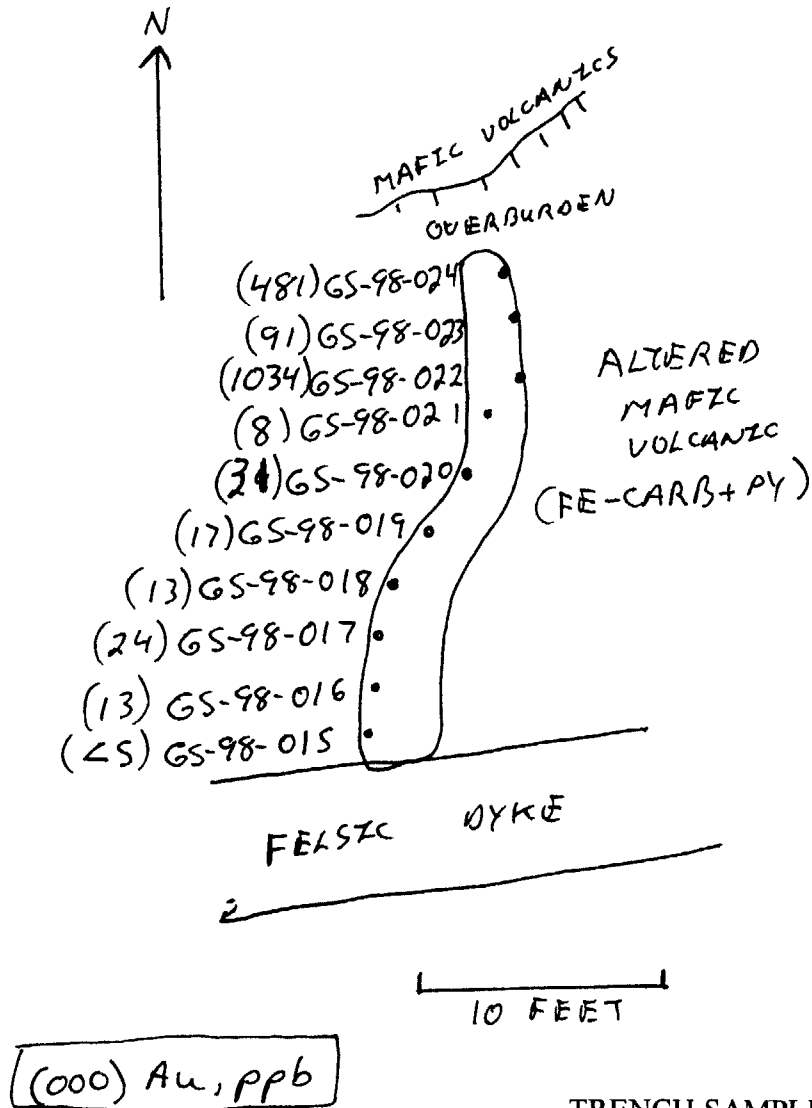 N
MAFIC VOLCANICS
OVERBURDEN
(481) GS-98-024
(91) GS-98-023
(1034) GS-98-022
(8) GS-98-021
GS-98-020
(17) GS-98-019
(13) GS-98-018
(24) GS-98-017
(13) GS-98-016
(<5) GS-98-015
ALTERED
MAFIC
VOLCANIC
(FE-CARB+PY)
FELSIC DYKE
10 FEET
(000) Au, ppb